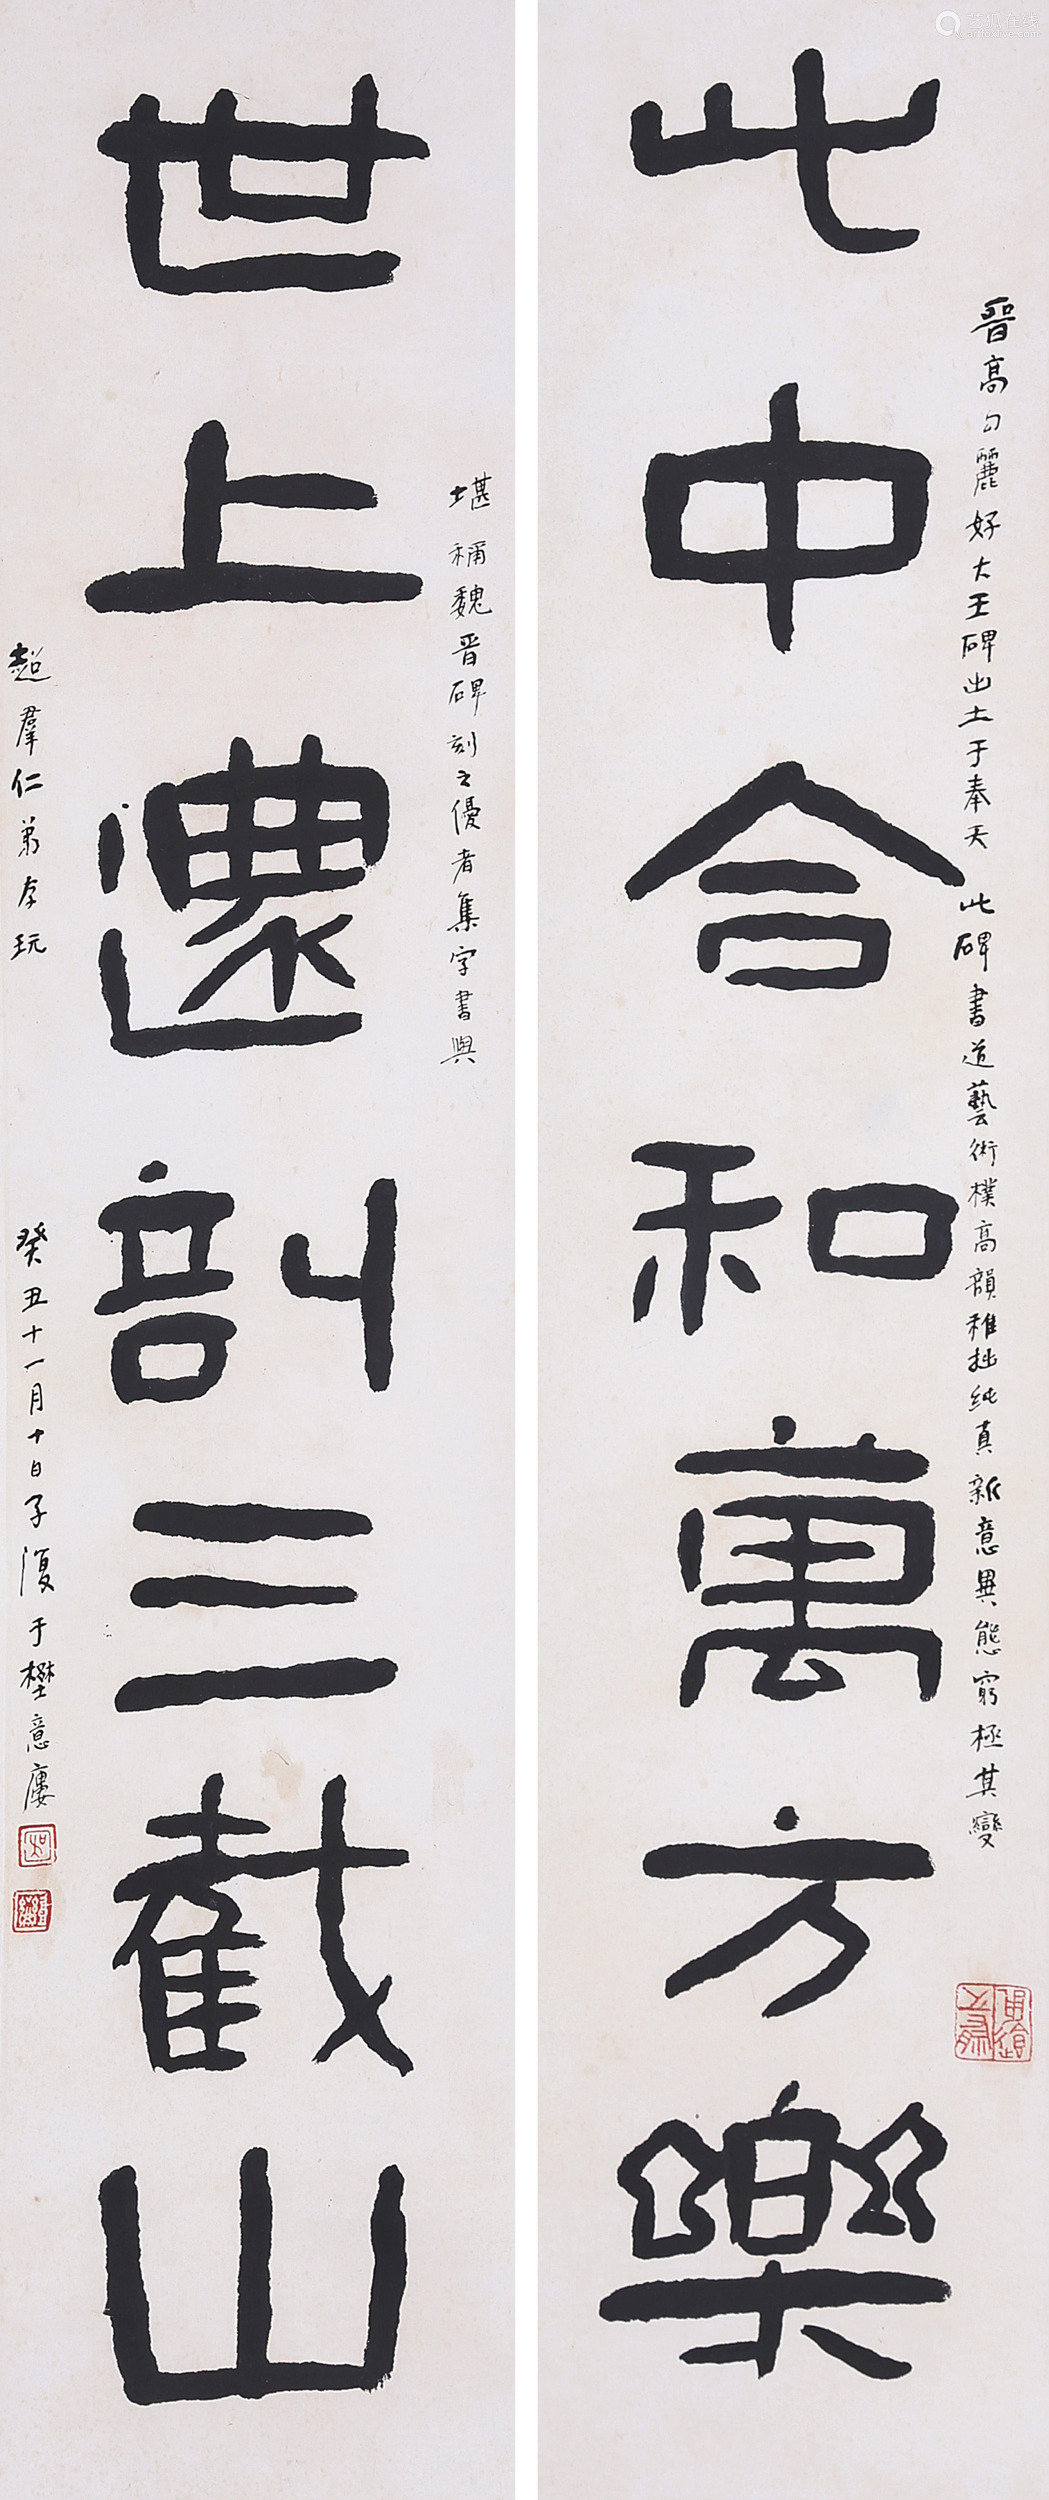 此中合和萬方樂
晉高句麗好大王碑出土于奉天此碑書道藝術樸高韻稚拙純真新意異態窮極其變
世上還剖三截山
堪稱魏晉碑刻之優者集字書與
超羣仁弟存玩
癸丑十一月十日子復于樊意廔
艺狐在线
artfoxlive.com